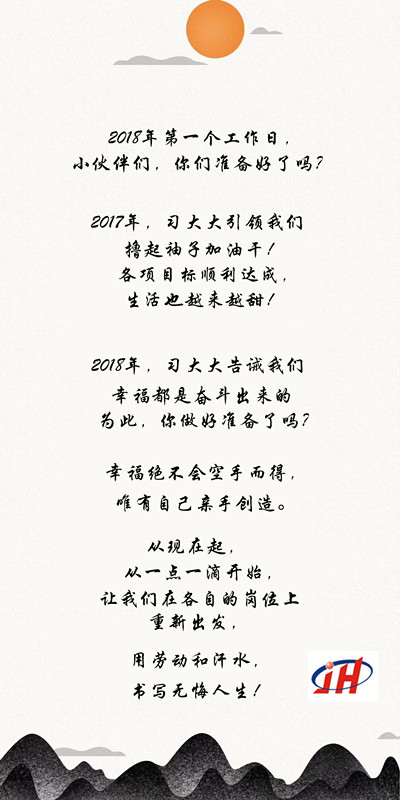 2018年第一个工作日，
小伙伴们，你们准备好了吗？
2017年，习大大引领我们
撸起袖子加油干！
各项目标顺利达成，
生活也越来越甜！
2018年，习大大告诫我们
幸福都是奋斗出来的
为此，你做好准备了吗？
幸福绝不会空手而得，
唯有自己亲手创造。
从现在起，
从一点一滴开始，
让我们在各自的岗位上
重新出发，
用劳动和汗水，
书写无悔人生！
JH